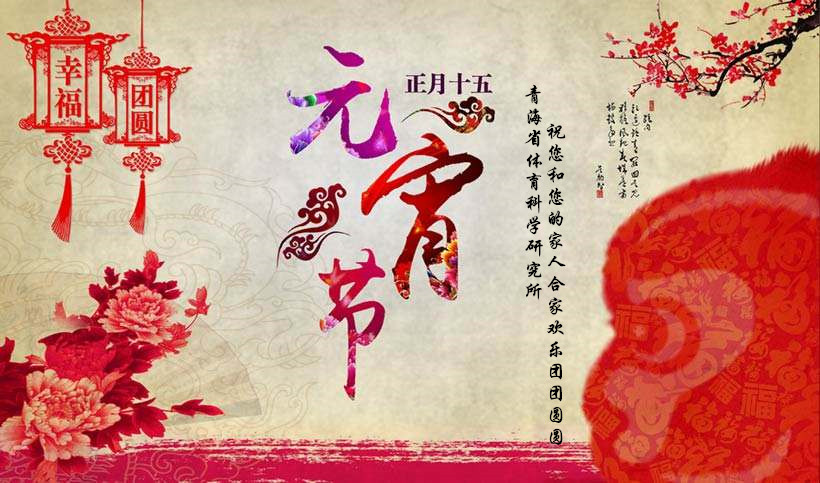 幸福
团圆
元宵节
正月十五
祝您和您的家人合家欢乐团团圆圆
青海省体育科学研究所
福
福